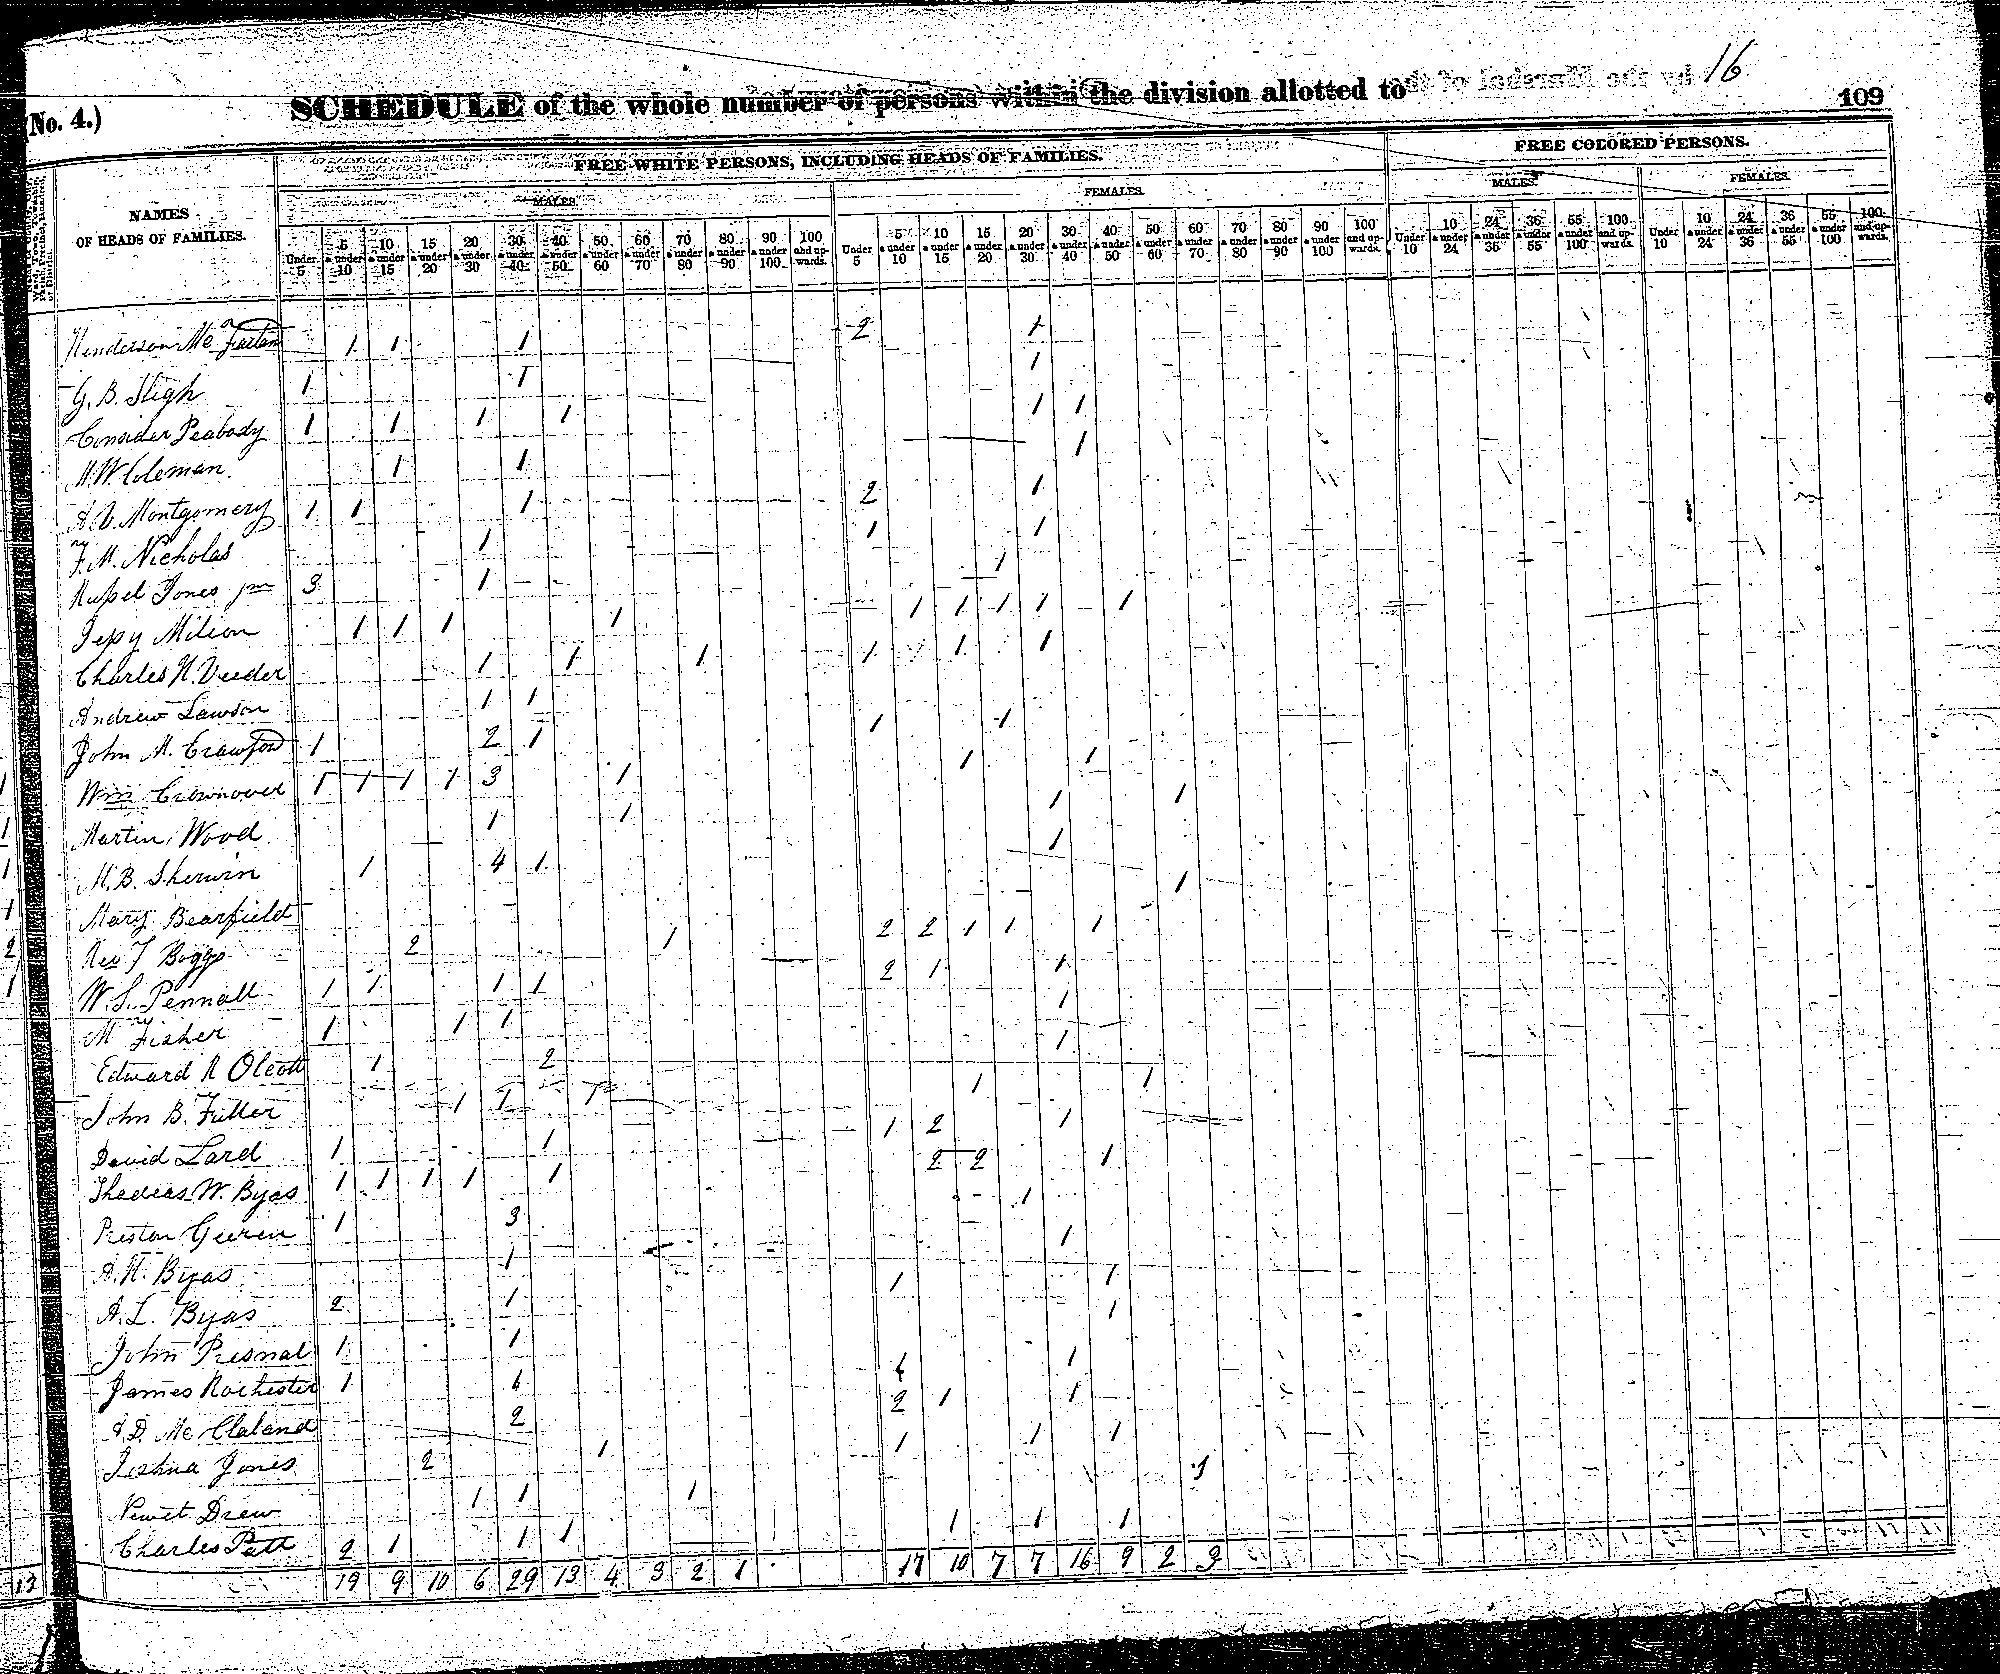 16
(No. 4.) SCHEDULE of the whole number of persons within the division allotted to by the Marshal of the 109
FREE WHITE PERSONS, INCLUDING HEADS OF FAMILIES. FREE COLORED PERSONS.
MALES. FEMALES. MALES. FEMALES.
NAMES OF HEADS OF FAMILIES.
Under 5 | 5 & under 10 | 10 & under 15 | 15 & under 20 | 20 & under 30 | 30 & under 40 | 40 & under 50 | 50 & under 60 | 60 & under 70 | 70 & under 80 | 80 & under 90 | 90 & under 100 | 100 and upwards. | Under 5 | 5 & under 10 | 10 & under 15 | 15 & under 20 | 20 & under 30 | 30 & under 40 | 40 & under 50 | 50 & under 60 | 60 & under 70 | 70 & under 80 | 80 & under 90 | 90 & under 100 | 100 and upwards. | Under 10 | 10 & under 24 | 24 & under 36 | 36 & under 55 | 55 & under 100 | 100 and upwards. | Under 10 | 10 & under 24 | 24 & under 36 | 36 & under 55 | 55 & under 100 | 100 and upwards.
Henderson Mc 1 1 1 2 1
G. B. Sligh 1 1 1
Consider Peabody 1 1 1 1 1 1
W. Coleman 1 1 1
A. V. Montgomery 1 1 1 2 1
F. M. Nicholas 1 1 1
Jones 3 1 1
Milion 1 1 1 1 1 1 1 1 1
Charles H. Veeder 1 1 1 1 1 1
Andrew Lawson 1 1
John M. Crawford 1 2 1 1 1
Wm Crownover 1 1 1 1 3 1 1 1
Martin Wood 1 1 1 1
M. B. Sherwin 1 4 1 1
Mary Bearfield 1
Boggs 2 1 2 2 1 1 1
W. S. Pennall 1 1 1 1 2 1 1
M Fisher 1 1 1 1
Edward R Olcott 1 2 1
John B. Fuller 1 1 1 1 1
David Lard 1 1 1 2 1
Thadeas W. Byas 1 1 1 1 1 2 2 1
Preston Gueren 1 3 1
A. H. Byas 1 1
A. L. Byas 2 1 1 1
John Presnal 1 1 1
James Rochester 1 4 4 1
McClaland 2 2 1 1
Joshua Jones 2 1 1 1 1
Newit Drew 1 1 1 1
Charles Patt 2 1 1 1 1 1 1
19 9 10 6 29 13 4 3 2 1 17 10 7 7 16 9 2 3